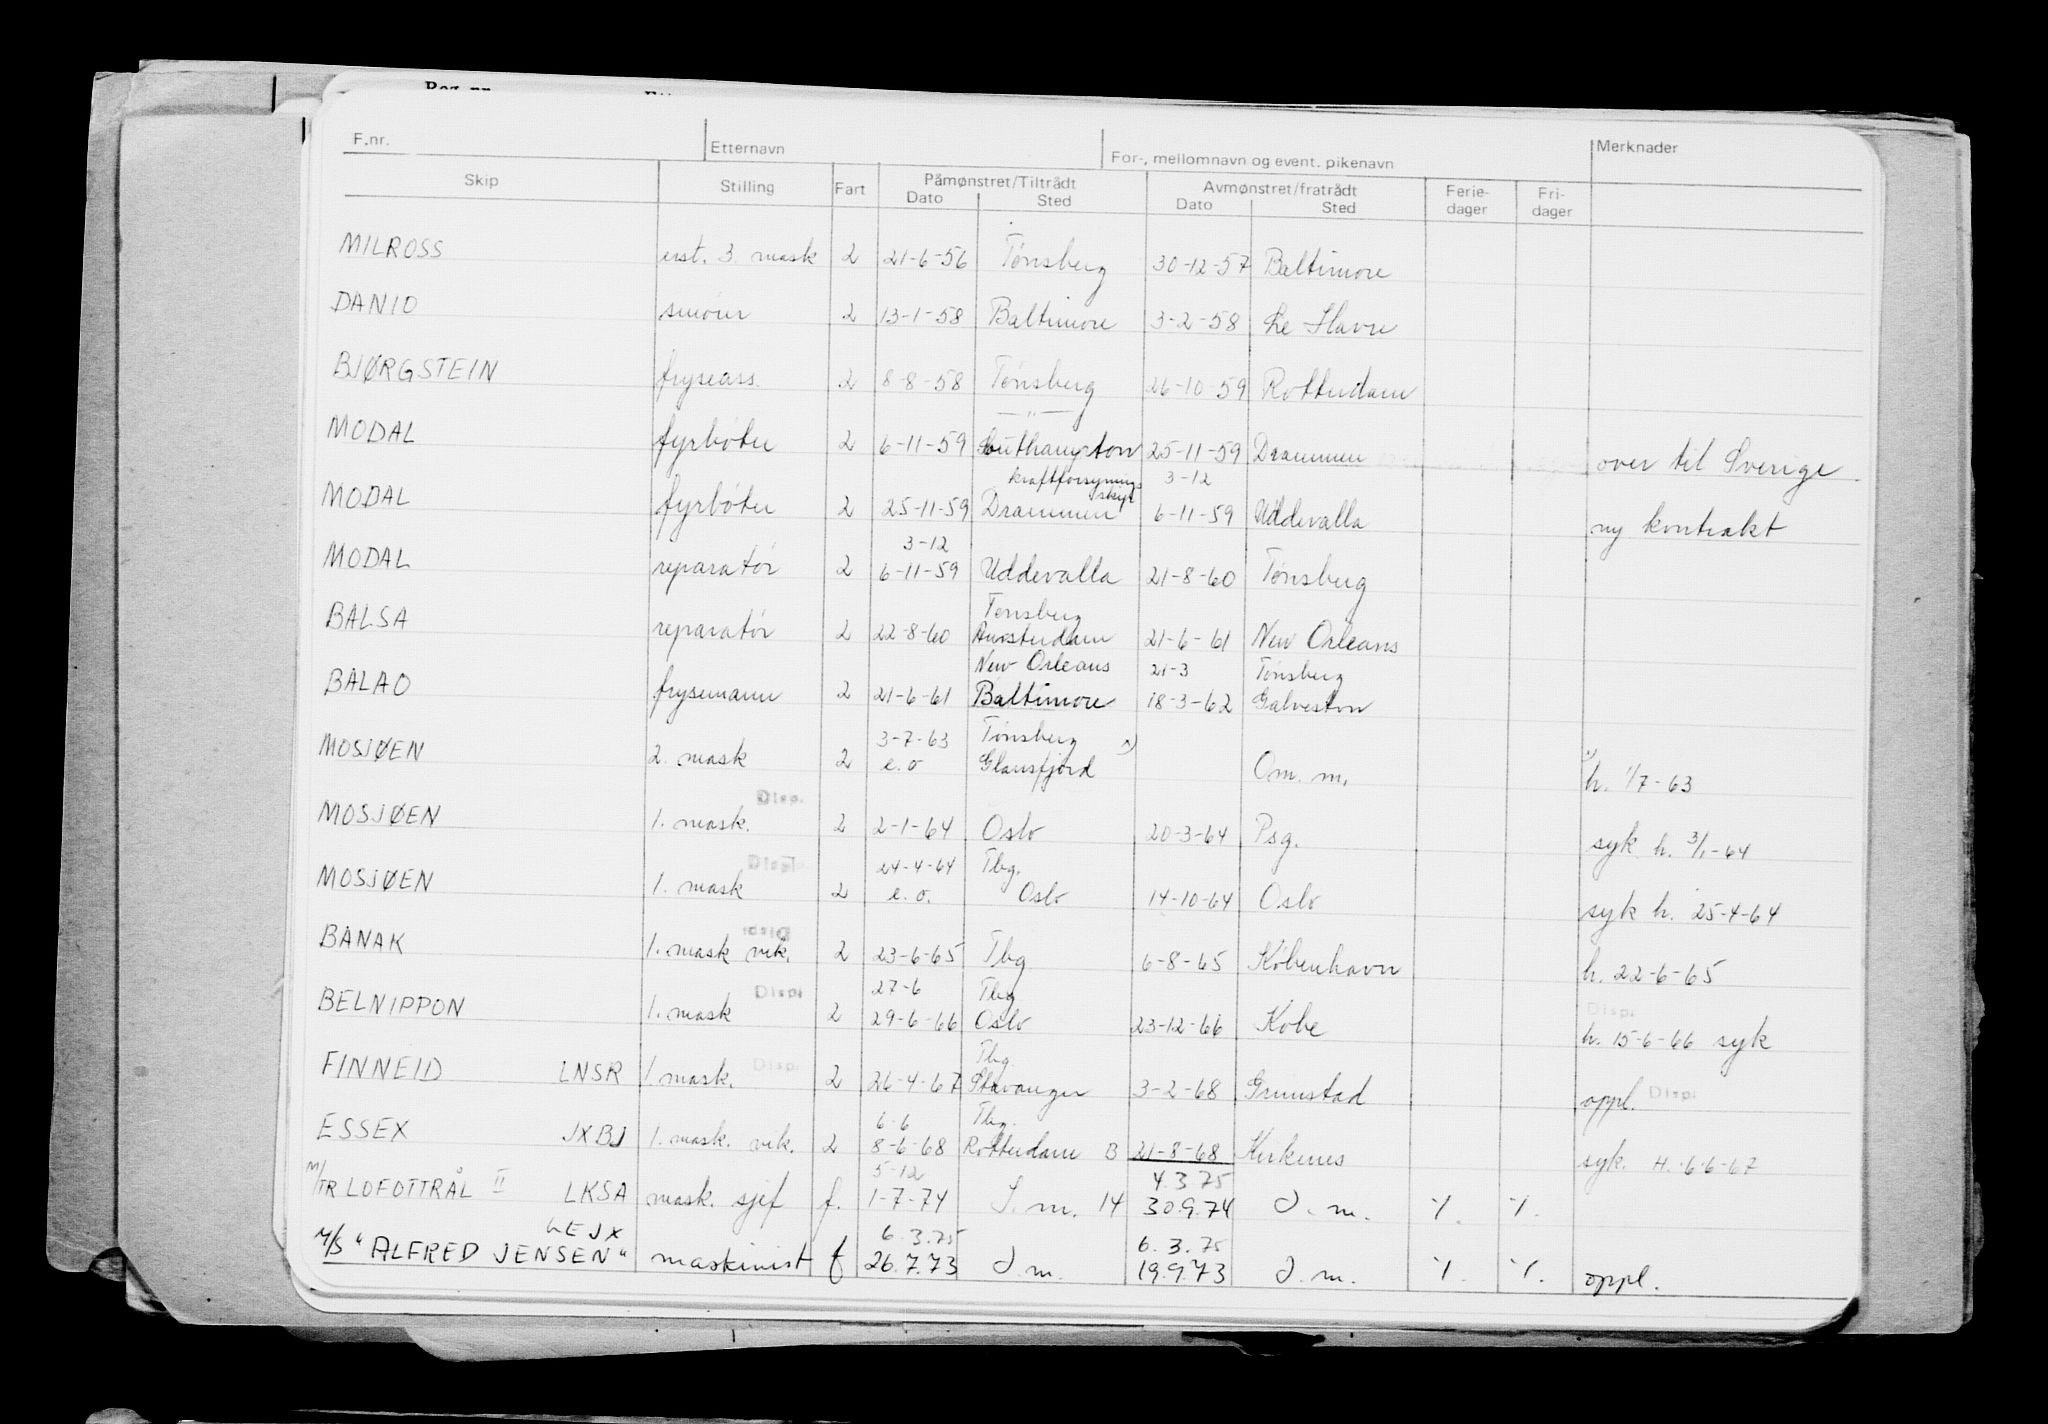 F.nr. Etternavn For-, mellomnavn og event. pikenavn Merknader
Skip Stilling Fart Påmønstret/Tiltrådt Avmønstret/fratrådt Ferie- Fri-
Dato Sted Dato Sted dager dager
MILROSS ust. 3. mask 2 21-6-56 Tønsberg 30-12-57 Baltimore
DANIO smører 2 13-1-58 Baltimore 3-2-58 Le Havre
BJØRGSTEIN fryseass. 2 8-8-58 Tønsberg 26-10-59 Rotterdam
—"—
MODAL fyrbøter 2 6-11-59 Southampton 25-11-59 Drammen over til Sverige
kraftforsynings 3-12
skip
MODAL fyrbøter 2 25-11-59 Drammen 6-11-59 Uddevalla ny kontrakt
3-12
MODAL reparatør 2 6-11-59 Uddevalla 21-8-60 Tønsberg
Tønsberg
BALSA reparatør 2 22-8-60 Amsterdam 21-6-61 New Orleans
New Orleans 21-3 Tønsberg
BALAO frysemann 2 21-6-61 Baltimore 18-3-62 Galveston
3-7-63 Tønsberg
MOSJØEN 2. mask 2 e.o Glomfjord x) Om. m. x) h. 1/7-63
Disp.
MOSJØEN 1. mask. 2 2-1-64 Oslo 20-3-64 Psg. syk h. 3/1-64
Displ. 24-4-64 Tbg.
MOSJØEN 1. mask 2 e.o. Oslo 14-10-64 Oslo syk h. 25-4-64
Disp.
BANAK 1. mask vik. 2 23-6-65 Tbg 6-8-65 København h. 22-6-65
Disp. 27-6 Tbg Disp.
BELNIPPON 1. mask 2 29-6-66 Oslo 23-12-66 Kobe h. 15-6-66 syk
Disp. Tbg
FINNEID LNSR 1. mask. 2 26-4-67 Stavanger 3-2-68 Grimstad oppl. Disp.
6-6 Tbg.
ESSEX JXBJ 1. mask. vik. 2 8-6-68 Rotterdam B 21-8-68 Kirkenes syk. H. 6-6-67
5-12 4.3.75
M/TR LOFOTTRÅL II LKSA mask. sjef f. 1-7-74 I. m. 14 30.9.74 I. m. ٪. ٪.
LEJX 6.3.75 6.3.75
M/S "ALFRED JENSEN" maskinist f 26.7.73 I.m. 19.9.73 I. m. ٪. ٪. oppl.